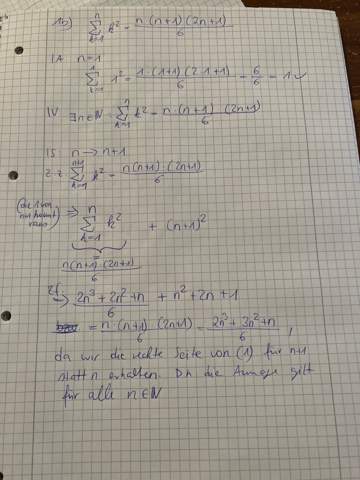 1b) n∑k=1 k² = n(n+1)(2n+1)/6
IA n=1
1∑k=1 1² = 1·(1+1)(2·1+1)/6 = 6/6 = 1 ✓
IV ∃n∈N: n∑k=1 k² = n·(n+1)(2n+1)/6
IS n → n+1
z.z n+1∑k=1 k² = n(n+1)·(2n+1)/6
(die 1 von
n+1 kommt
raus) ⇒ n∑k=1 k² + (n+1)²
n(n+1)·(2n+1)/6
⇒ 2n³+2n²+n/6 + n²+2n+1
= n·(n+1)(2n+1)/6 = 2n³+3n²+n/6 ,
da wir die rechte Seite von (1) für n+1
statt n erhalten. Da die Aussage gilt
für alle n∈N